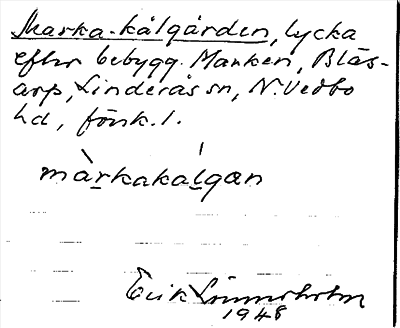 Marka-kålgården, lycka
efter bebygg. Marken, Blås-
arp, Linderås sn, N. Vedbo
hd, försk. 1.
màrkakálgan
Erik Linnerholm
1948